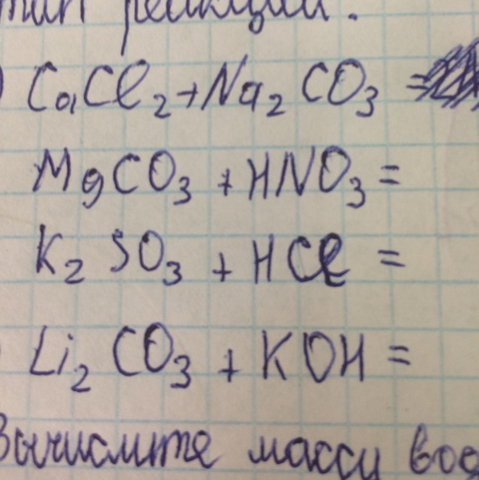 тип реакции.
) CaCl₂ + Na₂CO₃ =
MgCO₃ + HNO₃ =
K₂SO₃ + HCl =
Li₂CO₃ + KOH =
Вычислите массу